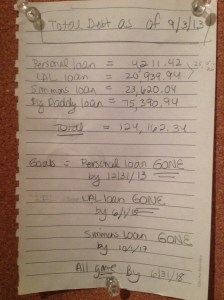 Total Debt as of 9/3/13
Personal loan = 4211.42
LAL loan = 20,939.94
Simmons loan = 23,620.04
Big Daddy loan = 75,390.94
TOTAL = 124,162.34
Goals = Personal loan GONE
by 12/31/13
LAL loan GONE
by 6/1/15
Simmons loan GONE
by 10/1/17
All gone By 12/31/18